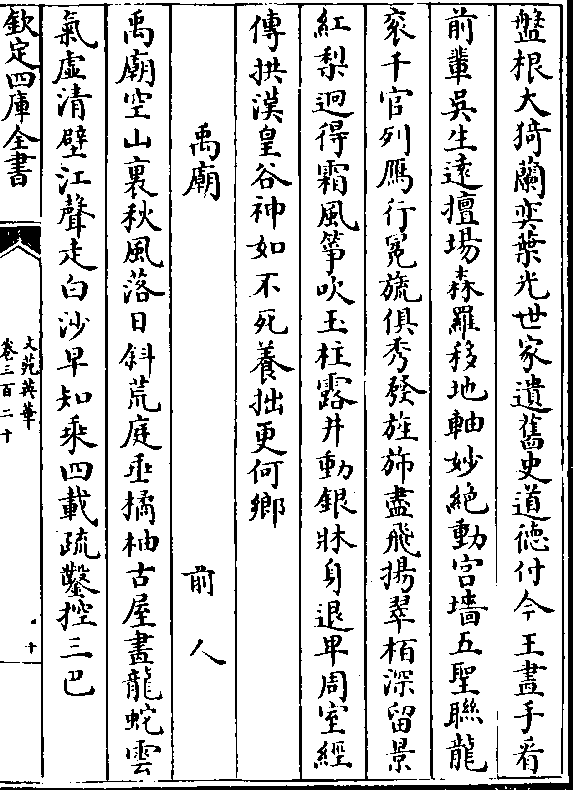 盤根大猗蘭奕葉光世家遺舊史道徳付今王畫手看
前輩吳生逺擅場森羅移地軸妙絶動宫墻五聖聯龍
衮千官列鴈行冕旒俱秀發旌斾盡飛揚翠栢深留景
紅梨迥得霜風箏吹玉柱露井動銀牀身退卑周室經
傳拱漢皇谷神如不死養拙更何鄉
禹廟 前人
禹廟空山裏秋風落日斜荒庭垂橘柚古屋畫龍蛇雲
氣虚清壁江聲走白沙早知乘四載疏鑿控三巴
欽定四庫全書
文苑英華
卷三百二十
十